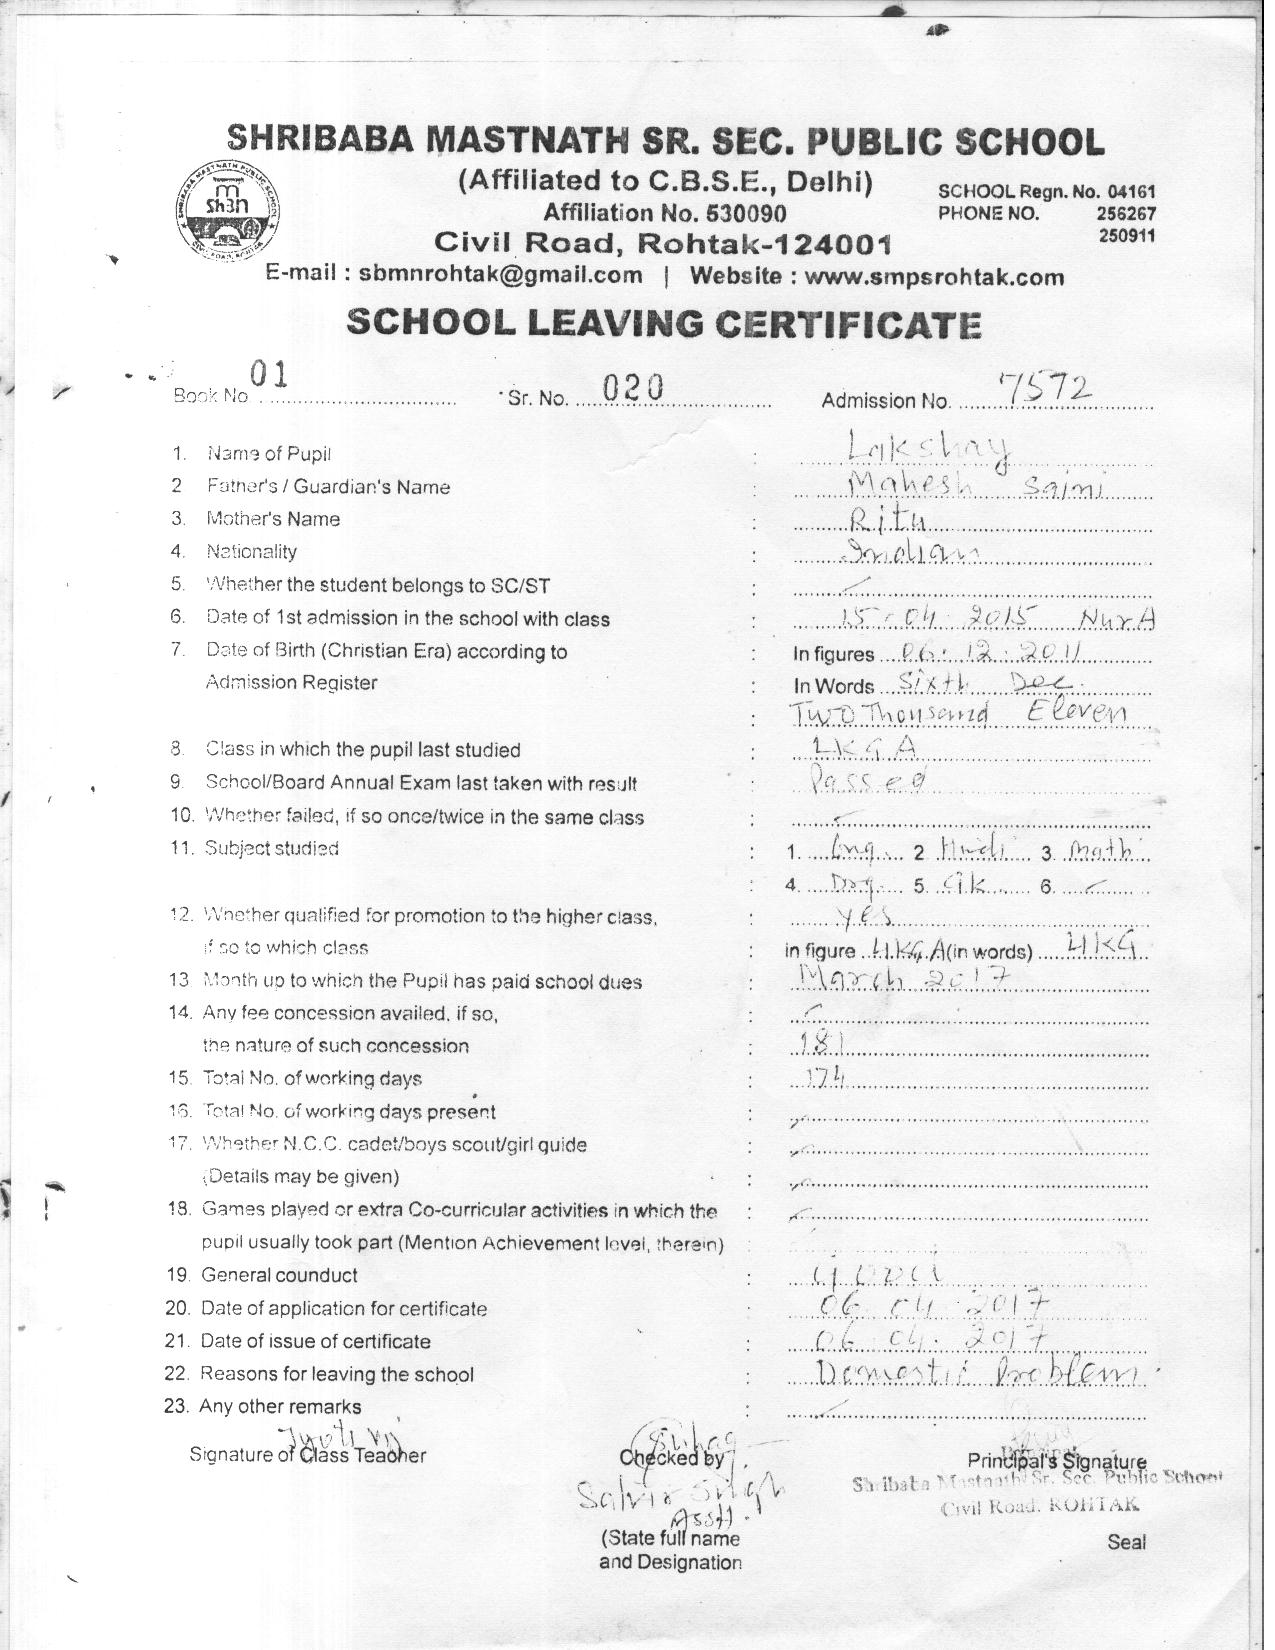 SHRIBABA MASTNATH SR. SEC. PUBLIC SCHOOL
(Affiliated to C.B.S.E., Delhi)
SCHOOL Regn. No. 04161
Affiliation No. 530090
PHONE NO. 256267
250911
Civil Road, Rohtak-124001
E-mail : sbmnrohtak@gmail.com | Website : www.smpsrohtak.com
SCHOOL LEAVING CERTIFICATE
Book No 01 Sr. No. 020 Admission No. 7572
1. Name of Pupil : Lakshay
2 Father's / Guardian's Name : Mahesh Saini
3. Mother's Name : Ritu
4. Nationality : Indian
5. Whether the student belongs to SC/ST :
6. Date of 1st admission in the school with class : 15-04-2015 Nur A
7. Date of Birth (Christian Era) according to : In figures 06.12.2011
Admission Register : In Words Sixth Dec.
: Two Thousand Eleven
8. Class in which the pupil last studied : LKG A
9. School/Board Annual Exam last taken with result : Passed
10. Whether failed, if so once/twice in the same class :
11. Subject studied : 1. Eng. 2 Hindi 3. Math
: 4. Drg. 5. GK 6.
12. Whether qualified for promotion to the higher class, : yes
if so to which class : in figure UKG.A (in words) UKG
13 Month up to which the Pupil has paid school dues : March 2017
14. Any fee concession availed, if so, :
the nature of such concession : 181
15. Total No. of working days : 174
16. Total No. of working days present :
17. Whether N.C.C. cadet/boys scout/girl guide :
(Details may be given) :
18. Games played or extra Co-curricular activities in which the :
pupil usually took part (Mention Achievement level, therein) :
19. General counduct : Good
20. Date of application for certificate : 06.04.2017
21. Date of issue of certificate : 06.04.2017
22. Reasons for leaving the school : Domestic Problem.
23. Any other remarks :
Jyoti
Signature of Class Teacher Checked by Principal's Signature
Principal
Shribaba Mastnath Sr. Sec. Public School
Civil Road, ROHTAK
Singh
Asstt.
(State full name Seal
and Designation